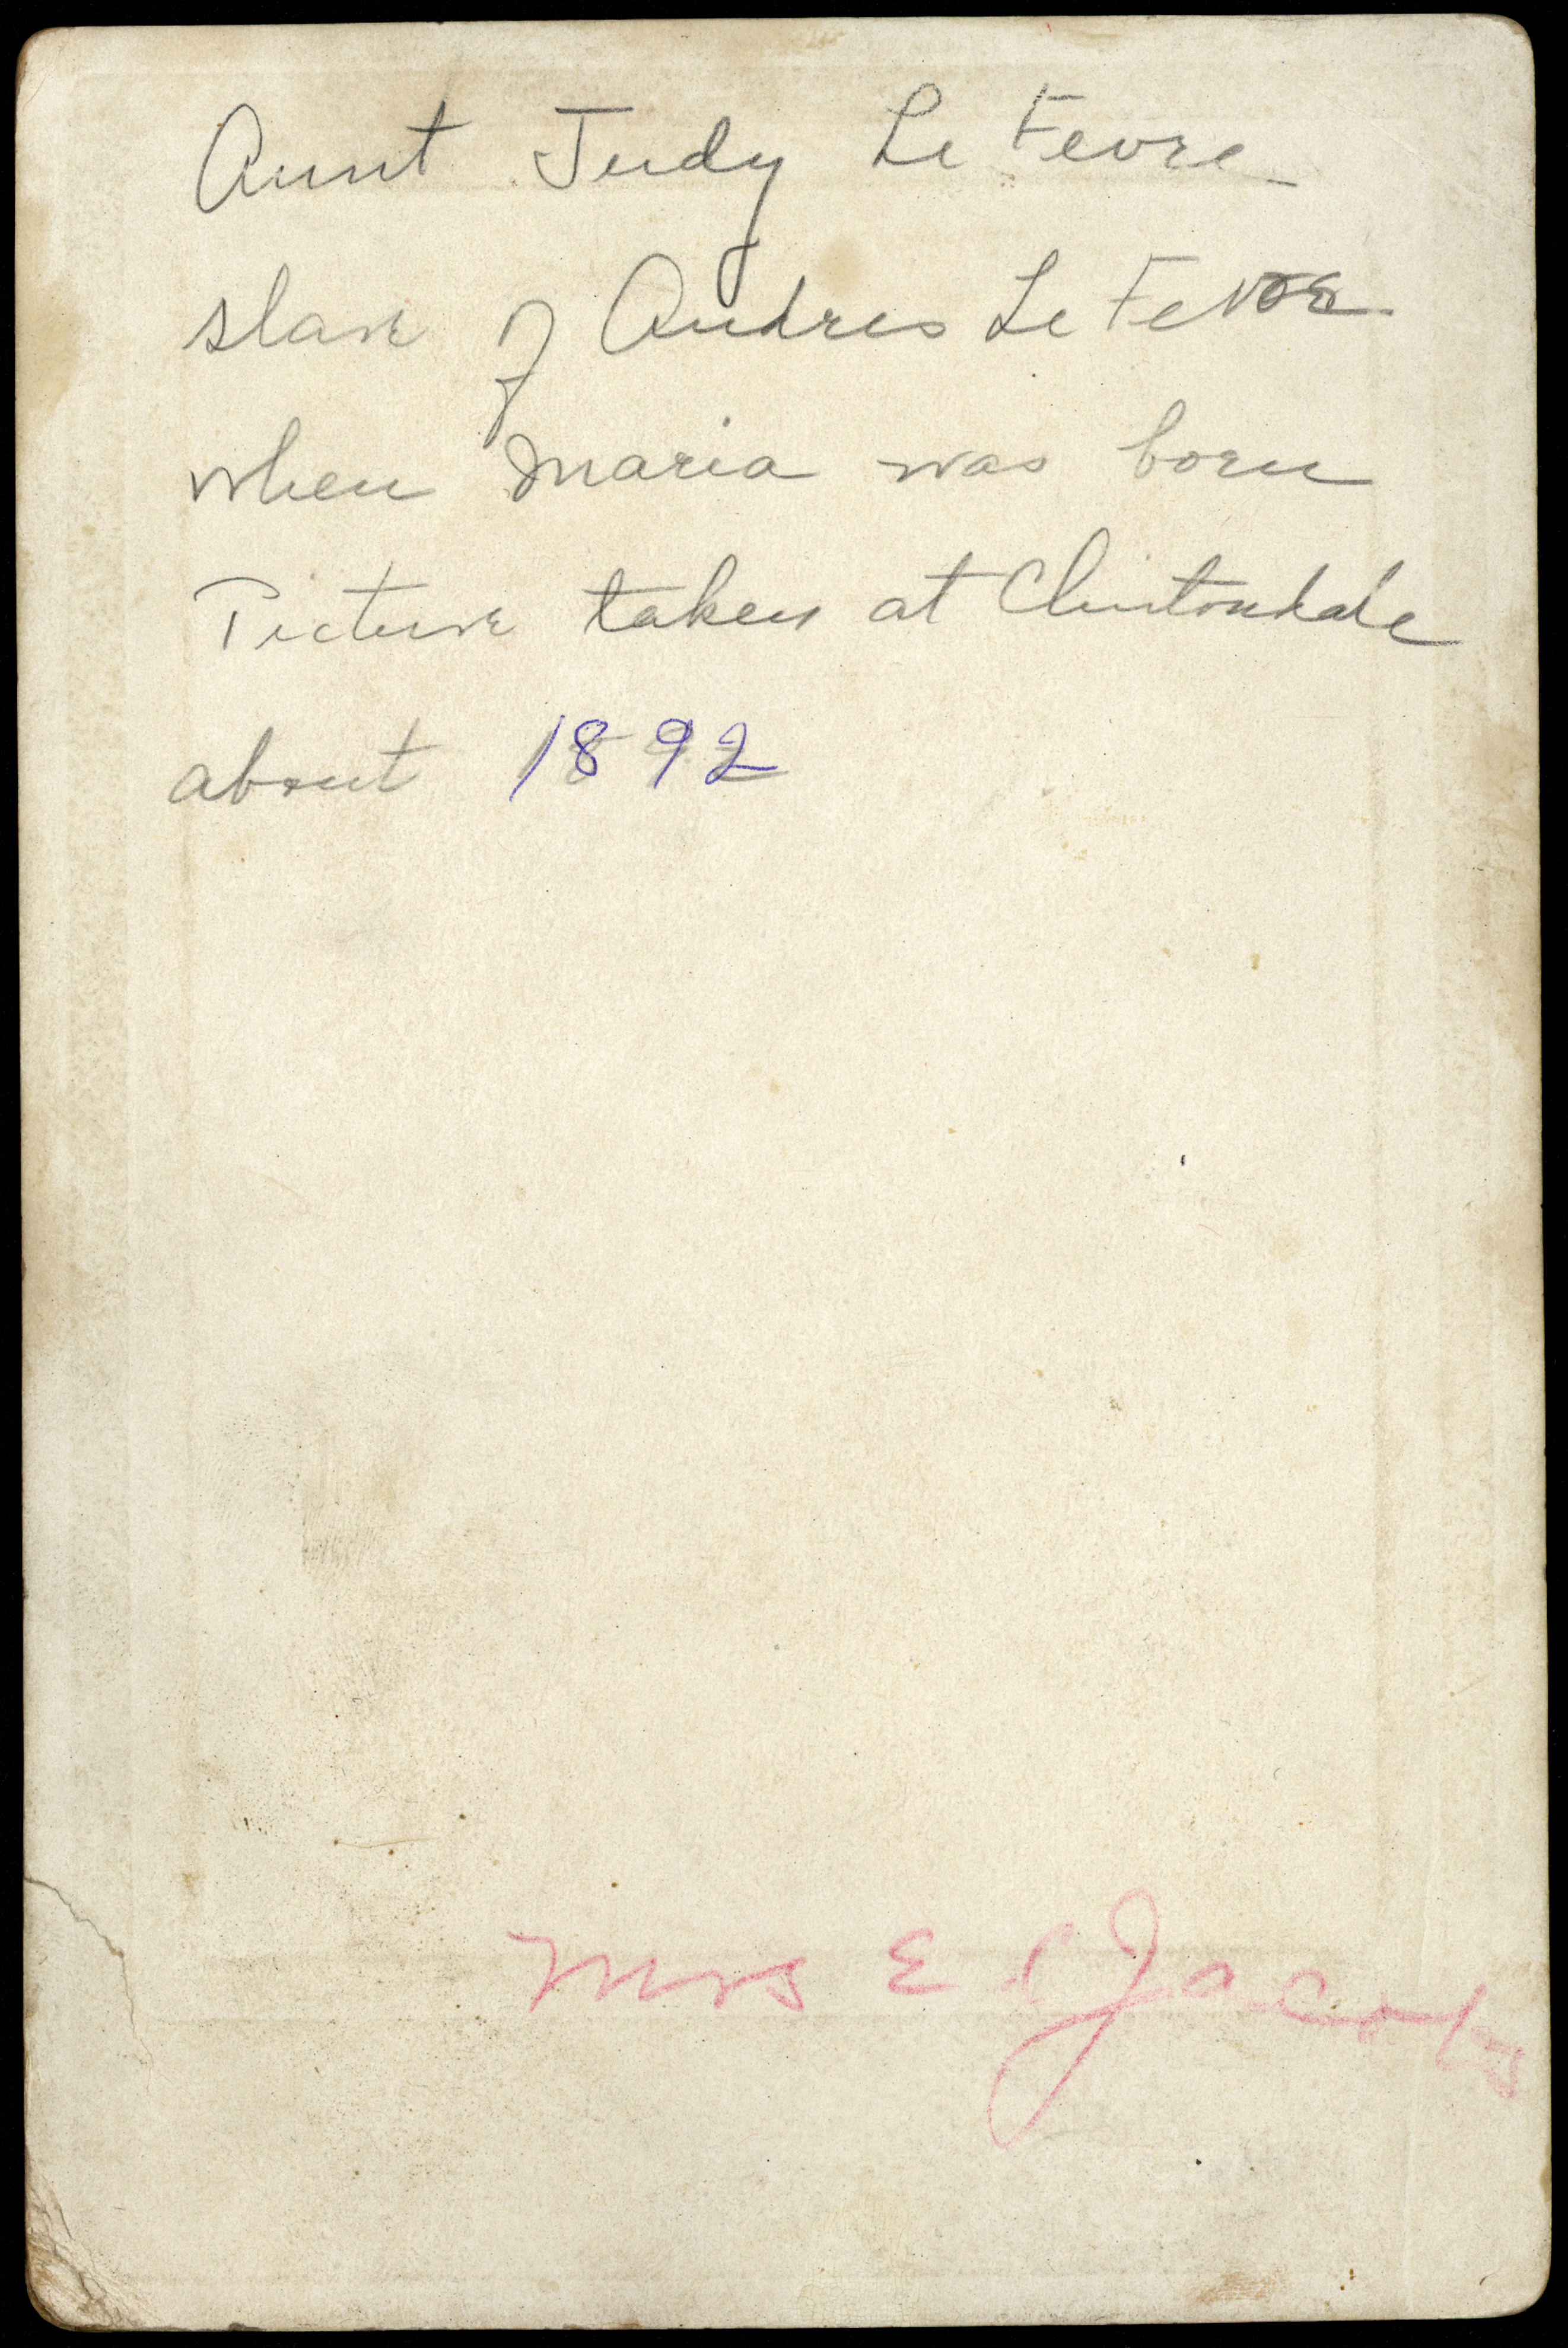 Aunt Judy Le Fevre
slave of Andries Le Fevre
when Maria was born
Picture taken at Clintondale
about 1892
Mrs E Jacobs